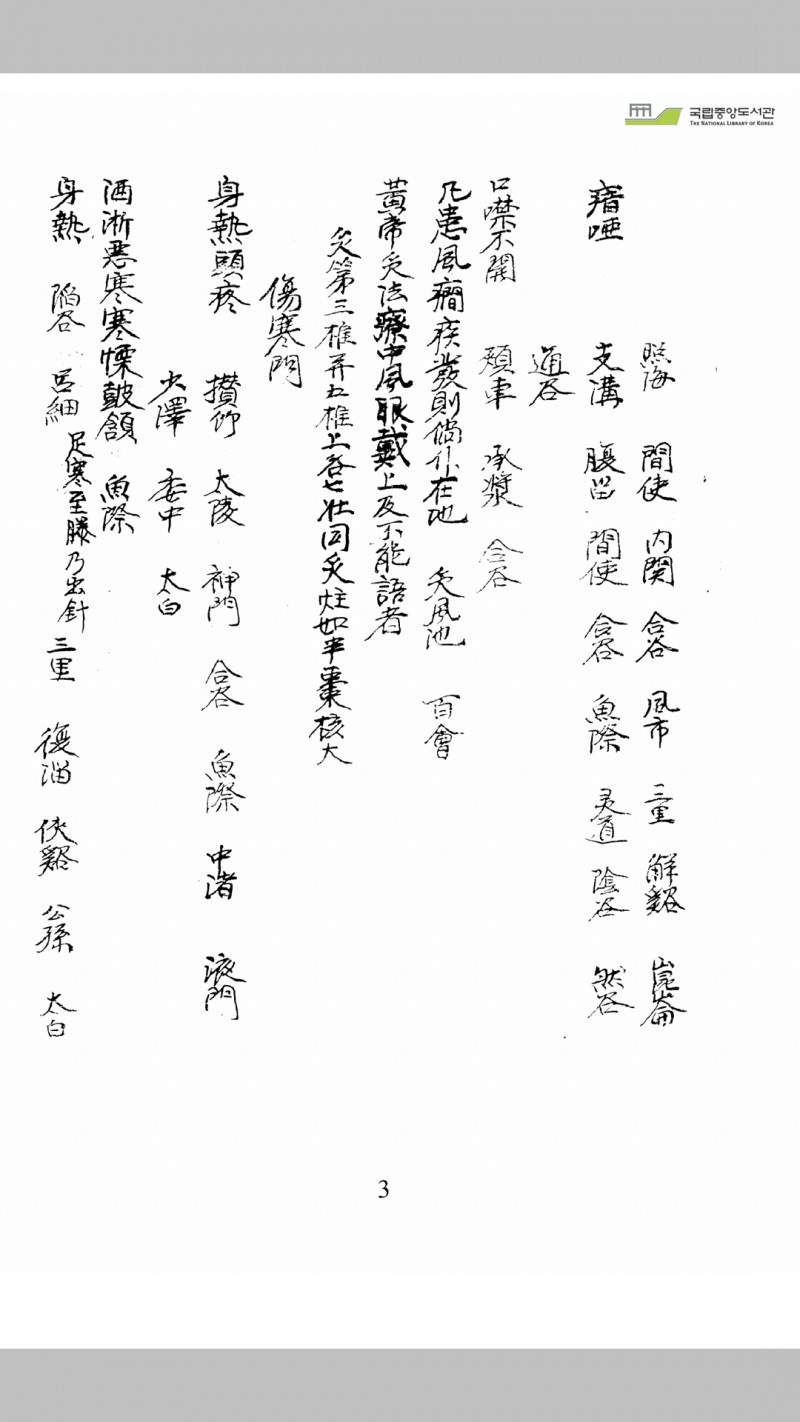 국립중앙도서관
THE NATIONAL LIBRARY OF KOREA
照海 間使 内関 合谷 風市 三里 解谿 崑崙
瘖啞 支溝 腹留 間使 合谷 魚際 灵道 陰谷 然谷
通谷
口噤不開 頬車 承漿 合谷
凡患風癇疾發則僵仆在地 灸風池 百會
黃帝灸法療中風眼戴上及不能語者
灸第三椎并五椎上各七壮同灸炷如半棗核大
傷寒門
身熱頭疼 攢竹 太陵 神門 合谷 魚際 中渚 液門
少澤 委中 太白
洒淅惡寒寒慄鼓頷 魚際
身熱 陷谷 呂細 足寒至膝乃出針 三里 復溜 俠谿 公孫 太白
3